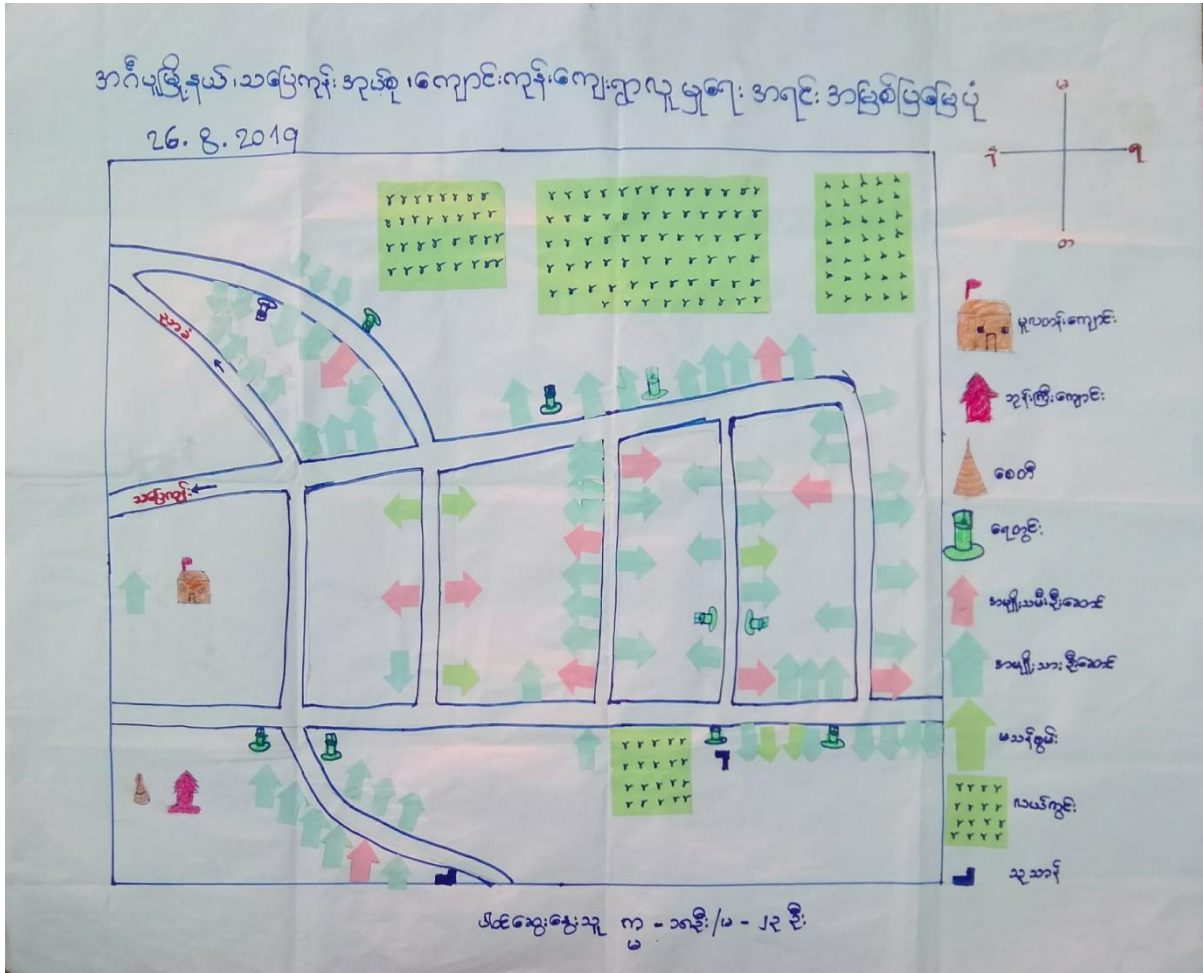 အင်္ဂပူမြို့နယ်၊သပြေကုန်းအုပ်စု၊ကျောင်းကုန်းကျေးရွာလူမှုရေးအရင်းအမြစ်ပြမြေပုံ
26.8.2019
မ
န
ရ
တ
မူလတန်းကျောင်း
ဘုန်းကြီးကျောင်း
စေတီ
ရေတွင်း
အမျိုးသမီးဦးဆောင်
အမျိုးသားဦးဆောင်
မသန်စွမ်း
လယ်ကွင်း
သုသာန်
ညာခံ
သပြေကုန်း
ပါဝင်ဆွေးနွေးသူ ကျ - ၁၈ဦး/မ - ၂၃ ဦး
မ